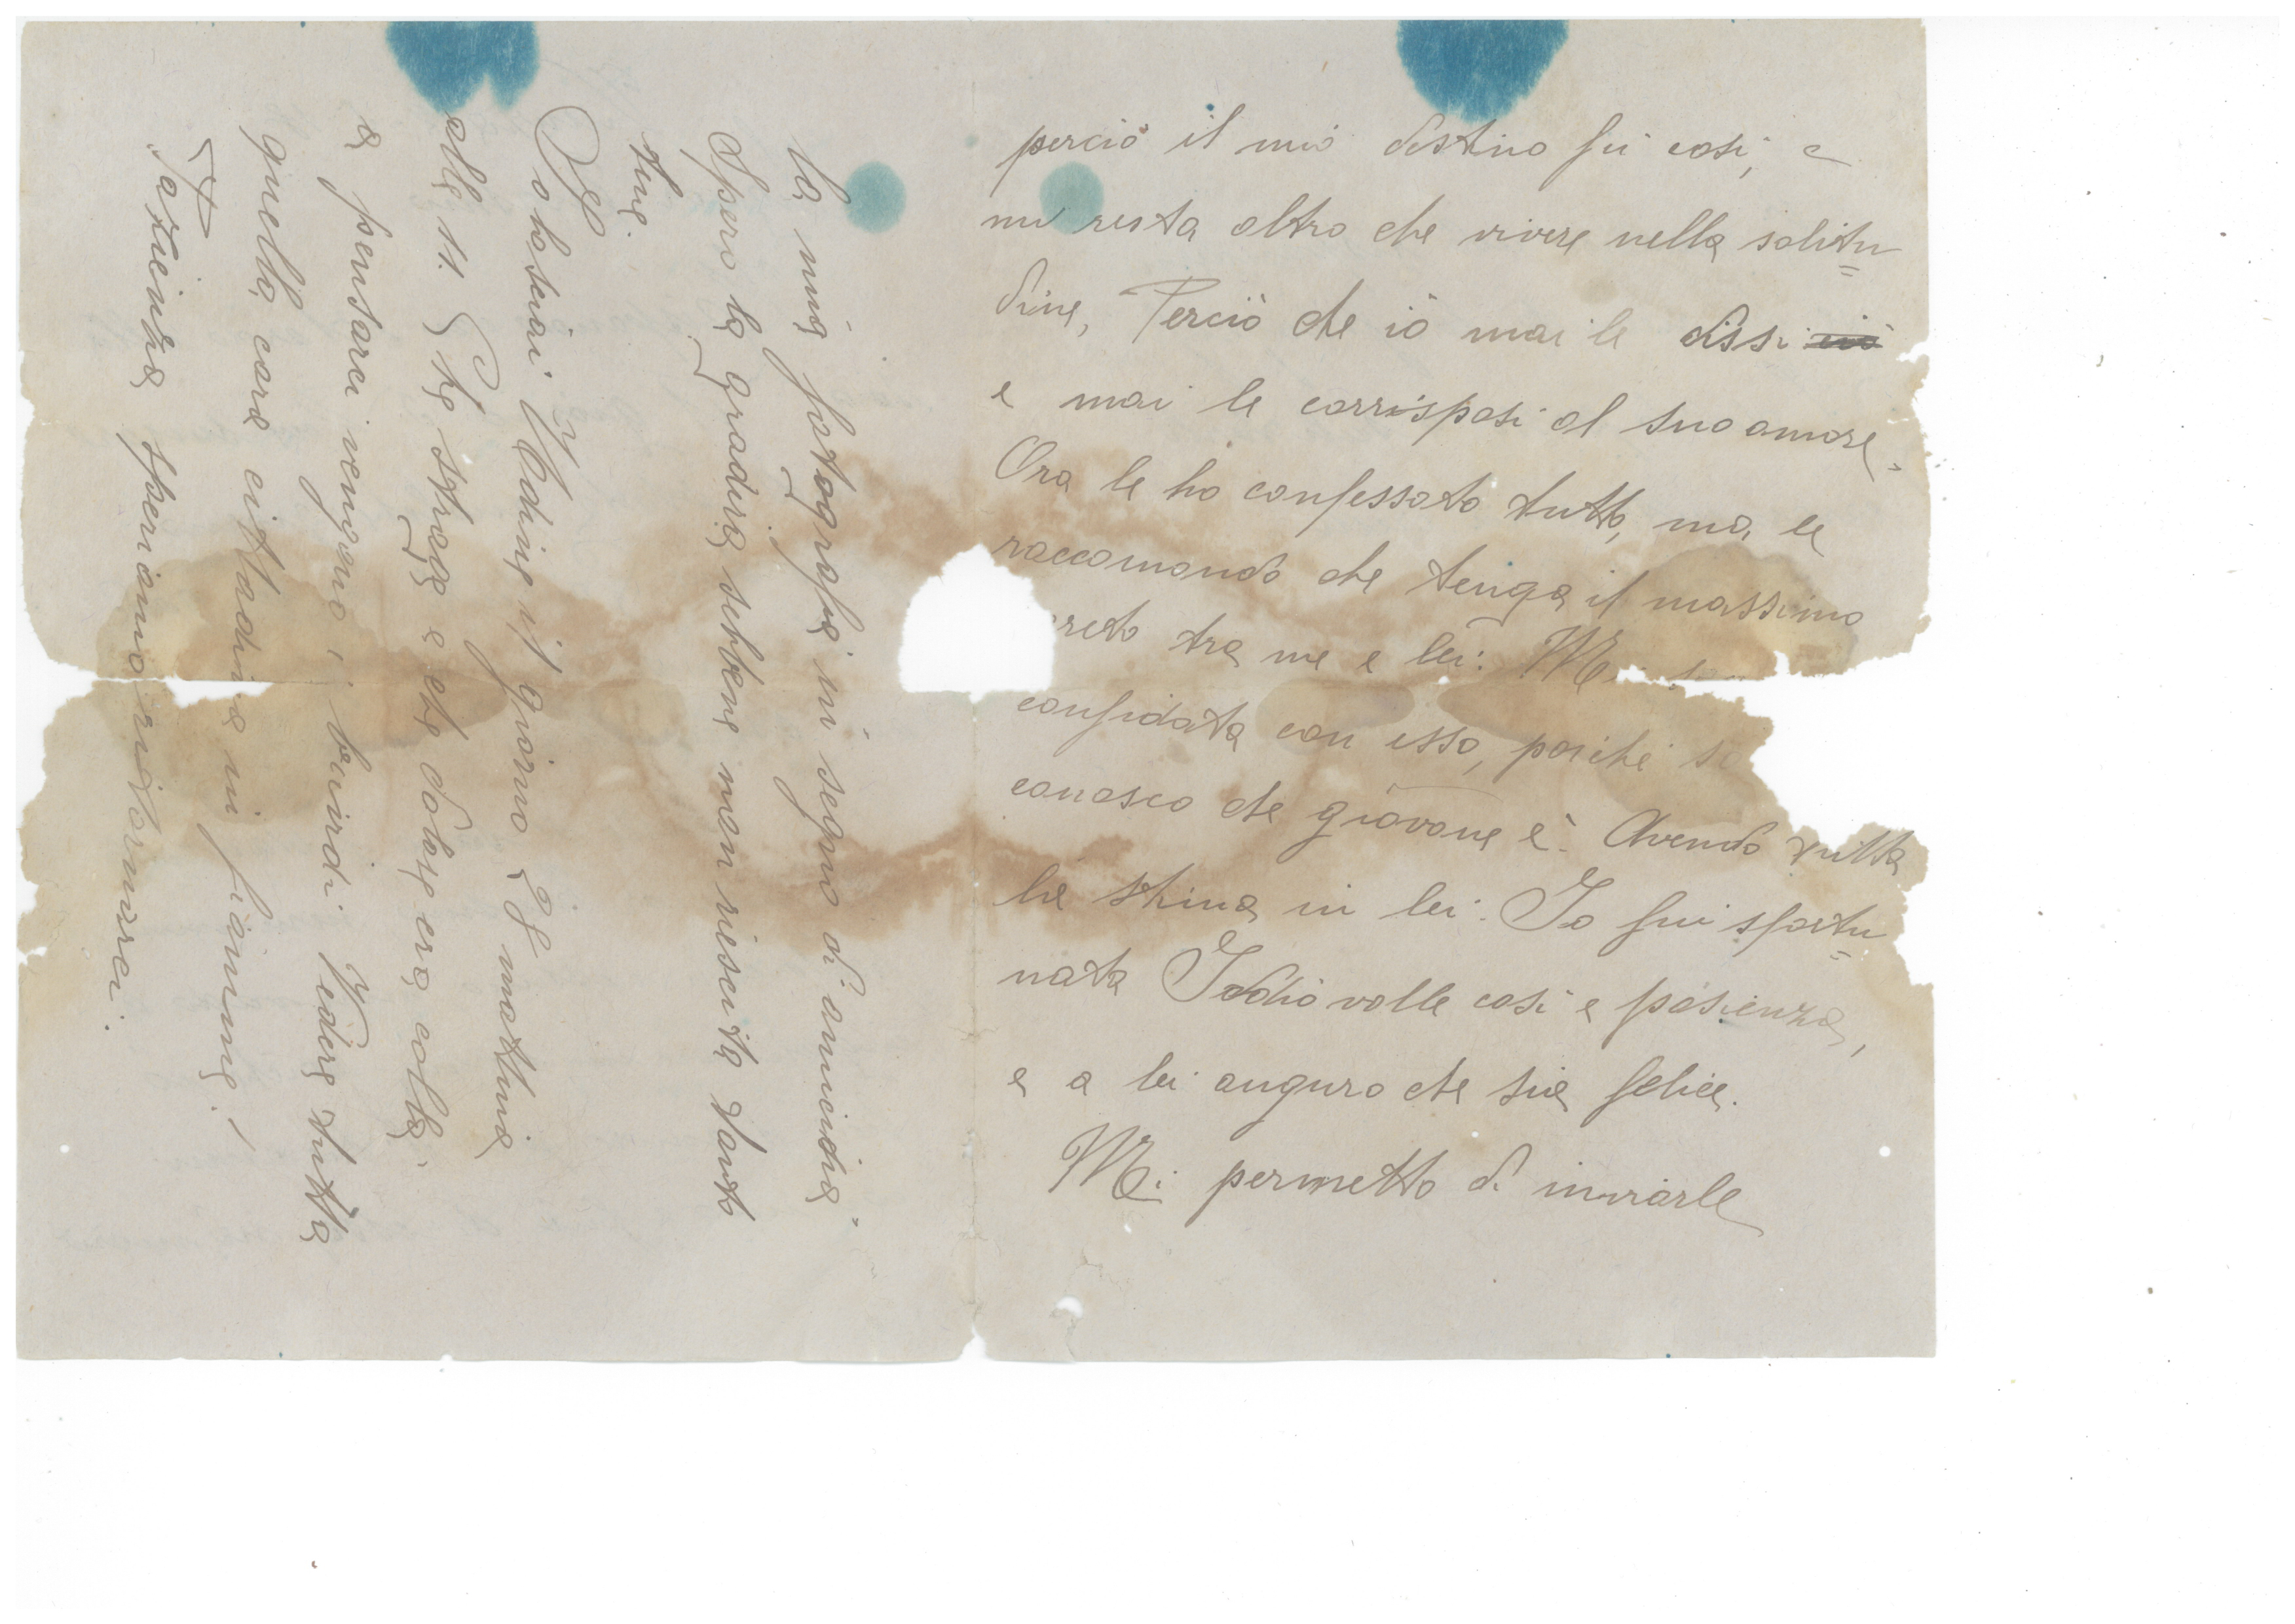 perciò il mio destino fu così, e
mi resta altro che vivere nella solitu=
dine, Perciò che iò mai le dissi
e mai le corrisposi al suo amore.
Ora le ho confessato tutto, ma le
raccomando che tenga il massimo
creto tra me e lei. M
confidata con esso, poiché
conosco che giovane è. Avendo tutta
la stima in lei. Io fui sfortu=
nata Iddio volle così e pasienza,
e a lei auguro che sia felice.
Mi permetto di inviarle
la mia fotografia in segno di amicizia.
Spero la gradirà sebbene non riescita tanto
bene.
Io lasciai Udine il giorno 28 mattina
alle 11. Che strage e che dolore era colà.
a pensarci vengono i brividi. Vedere tutta
quella cara cittadina in fiamme!
Pazienza speriamo ritornarci.